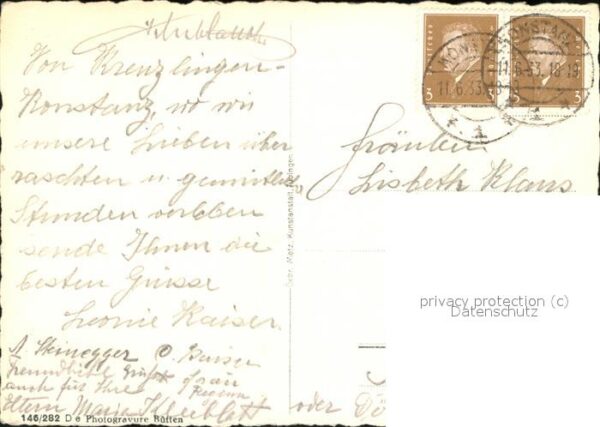 Von Kreuzlingen-
Konstanz, wo wir
unsere Lieben über
raschten u. gemütliche
Stunden verleben
sende Ihnen die
besten Grüsse
Leonie Kaiser.
A. Steinegger O. Kaiser
freundliche Grüße
auch für Ihre
Eltern Maria
oder
Fräulein
Lisbeth Klaus
KONSTANZ
11.6.33.18-19
3
KONSTANZ
11.6.33.18-19
3
Gebr. Metz, Kunstanstalt, Tübingen
privacy protection (c)
Datenschutz
146/282 D e Photogravure Bütten